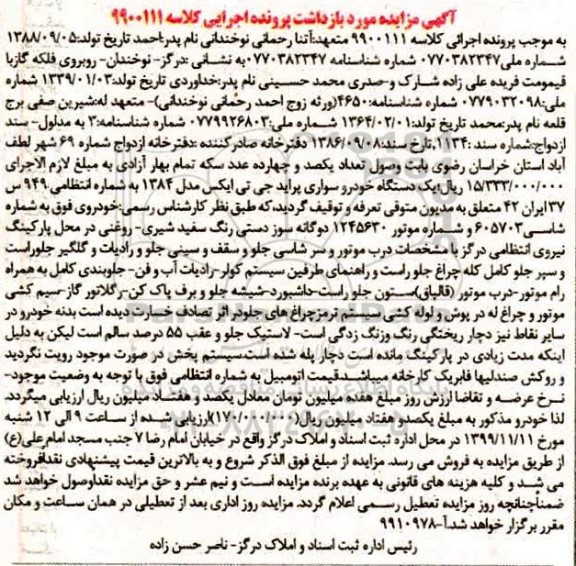 آگهی مزایده مورد بازداشت پرونده اجرایی کلاسه ۹۹۰۰۱۱۱
به موجب پرونده اجرائی کلاسه ۹۹۰۰۱۱۱ متعهد:آتنا رحمانی نوخندانی نام پدر:احمد تاریخ تولد:۱۳۸۸/۰۹/۰۵
شماره ملی:۰۷۷۰۳۸۲۳۴۷ شماره شناسنامه ۰۷۷۰۳۸۲۳۴۷به نشانی :درگز- نوخندان- روبروی فلکه گازبا
قیمومت فریده علی زاده شارک و-صدری محمد حسینی نام پدر:خداوردی تاریخ تولد:۱۳۳۹/۰۱/۰۳ شماره
ملی:۰۷۷۹۰۳۲۰۹۸ شماره شناسنامه:۴۶۵۰(ورثه زوج احمد رحمانی نوخندانی)- متعهد له:شیرین صفی برج
قلعه نام پدر:محمد تاریخ تولد:۱۳۶۴/۰۲/۰۱ شماره ملی:۰۷۷۹۹۲۶۸۰۳ شماره شناسنامه:۳ به مدلول- سند
ازدواج:شماره سند :۱۱۳۴,تاریخ سند:۱۳۸۶/۰۹/۰۸ دفترخانه صادرکننده :دفترخانه ازدواج شماره ۶۹ شهر لطف
آباد استان خراسان رضوی بابت وصول تعداد یکصد و چهارده عدد سکه تمام بهار آزادی به مبلغ لازم الاجرای
۱۵/۳۳۳/۰۰۰/۰۰۰ ریال؛یک دستگاه خودرو سواری پراید جی تی ایکس مدل ۱۳۸۴ به شماره انتظامی ۹۴۹ س
۳۷ایران ۴۲ متعلق به مدیون متوفی تعرفه و توقیف گردید،که طبق نظر کارشناس رسمی:خودروی فوق به شماره
شاسی۶۰۵۷۰۳ و شماره موتور ۱۲۴۵۶۳۰ دوگانه سوز دستی رنگ سفید شیری- روغنی در محل پارکینگ
نیروی انتظامی درگز با مشخصات درب موتور و سر شاسی جلو و سقف و سینی جلو و رادیات و گلگیر جلوراست
و سپر جلو کامل کله چراغ جلو راست و راهنمای طرفین سیستم کولر-رادیات آب و فن- جلوبندی کامل به همراه
رام موتور-درب موتور (قالپاق)ستون جلو راست-داشبورد-شیشه جلو و برف پاک کن-رگلاتور گاز-سیم کشی
موتور و چراغ له در پوش و لوله کشی سیستم ترمزچراغ های جلودر اثر تصادف خسارت دیده است بدنه خودرو در
سایر نقاط نیز دچار ریختگی رنگ وزنگ زدگی است- لاستیک جلو و عقب ۵۵ درصد سالم است لیکن به دلیل
اینکه مدت زیادی در پارکینگ مانده است دچار پله شده است.سیستم پخش در صورت موجود رویت نگردید
و روکش صندلیها فابریک کارخانه میباشد.قیمت اتومبیل به شماره انتظامی فوق با توجه به وضعیت موجود-
نرخ عرضه و تقاضا ارزش روز مبلغ هفده میلیون تومان معادل یکصد و هفتاد میلیون ریال ارزیابی میگردد.
لذا خودرو مذکور به مبلغ یکصدو هفتاد میلیون ریال(۱۷۰/۰۰۰/۰۰۰)ارزیابی شده از ساعت ۹ الی ۱۲ شنبه
مورخ ۱۳۹۹/۱۱/۱۱ در محل اداره ثبت اسناد و املاک درگز واقع در خیابان امام رضا ۷ جنب مسجد امام علی(ع)
از طریق مزایده به فروش می رسد. مزایده از مبلغ فوق الذکر شروع و به بالاترین قیمت پیشنهادی نقدافروخته
می شد و کلیه هزینه های قانونی به عهده برنده مزایده است و نیم عشر و حق مزایده نقداوصول خواهد شد
ضمناًچنانچه روز مزایده تعطیل رسمی اعلام گردد. مزایده روز اداری بعد از تعطیلی در همان ساعت و مکان
مقرر برگزار خواهد شد.آ-۹۹۱۰۹۷۸
رئیس اداره ثبت اسناد و املاک درگز- ناصر حسن زاده